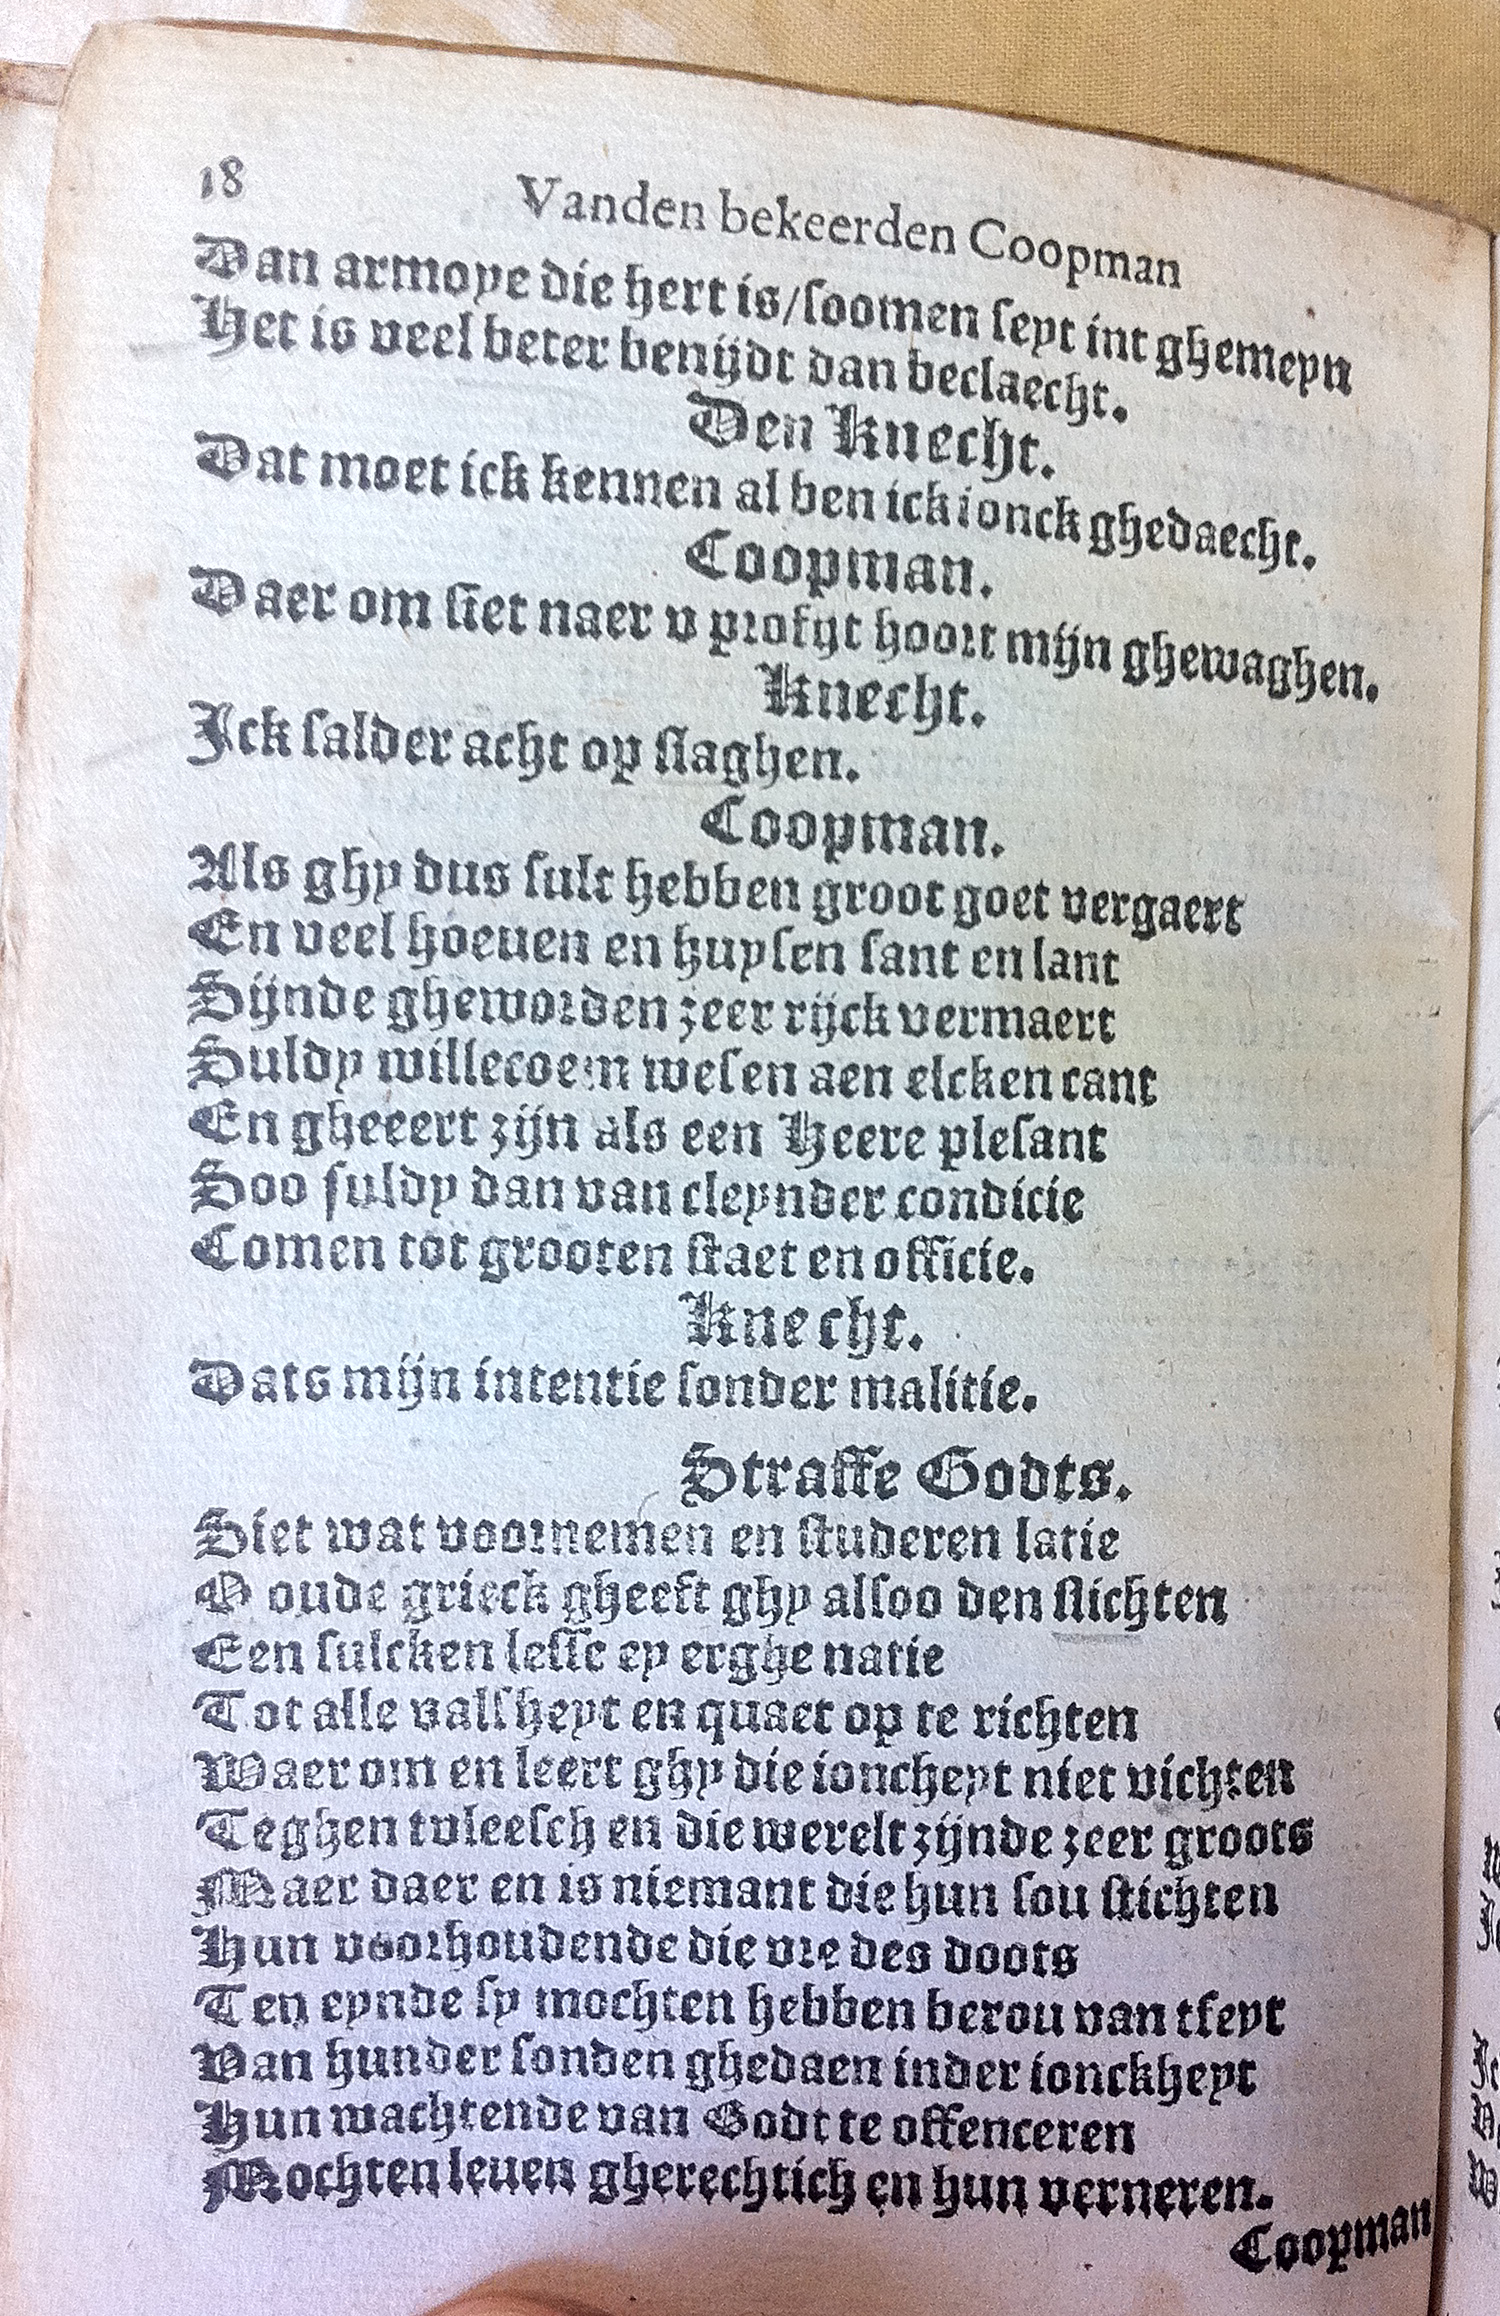 18
Vanden bekeerden Coopman
Dan armoye die hert is/soomen seyt int ghemeyn
Het is veel beter benijdt dan beclaecht.
Den Knecht.
Dat moet ick kennen al ben ick ionck ghedaecht.
Coopman.
Daer om siet naer v profijt hoort mijn ghewaghen.
Knecht.
Ick salder acht op slaghen.
Coopman.
Als ghy dus sult hebben groot goet vergaert
En veel hoeuen en huysen sant en lant
Sijnde gheworden zeer rijck vermaert
Suldy willecoem wesen aen elcken cant
En gheeert zijn als een Heere plesant
Soo suldy dan van cleynder condicie
Comen tot grooten staet en officie.
Knecht.
Dats mijn intentie sonder malitie.
Straffe Godts.
Siet wat voornemen en studeren latie
O oude grieck gheeft ghy alsoo den slichten
Een sulcken lesse ey erghe natie
Tot alle valsheyt en quaet op te richten
Waer om en leert ghy die ioncheyt niet vichten
Teghen tvleesch en die werelt zijnde zeer groots
Maer daer en is niemant die hun sou stichten
Hun voorhoudende die vre des doots
Ten eynde sy mochten hebben berou van tfeyt
Van hunder sonden ghedaen inder ionckheyt
Hun wachtende van Godt te offenceren
Mochten leuen gherechtich en hun verneren.
Coopman